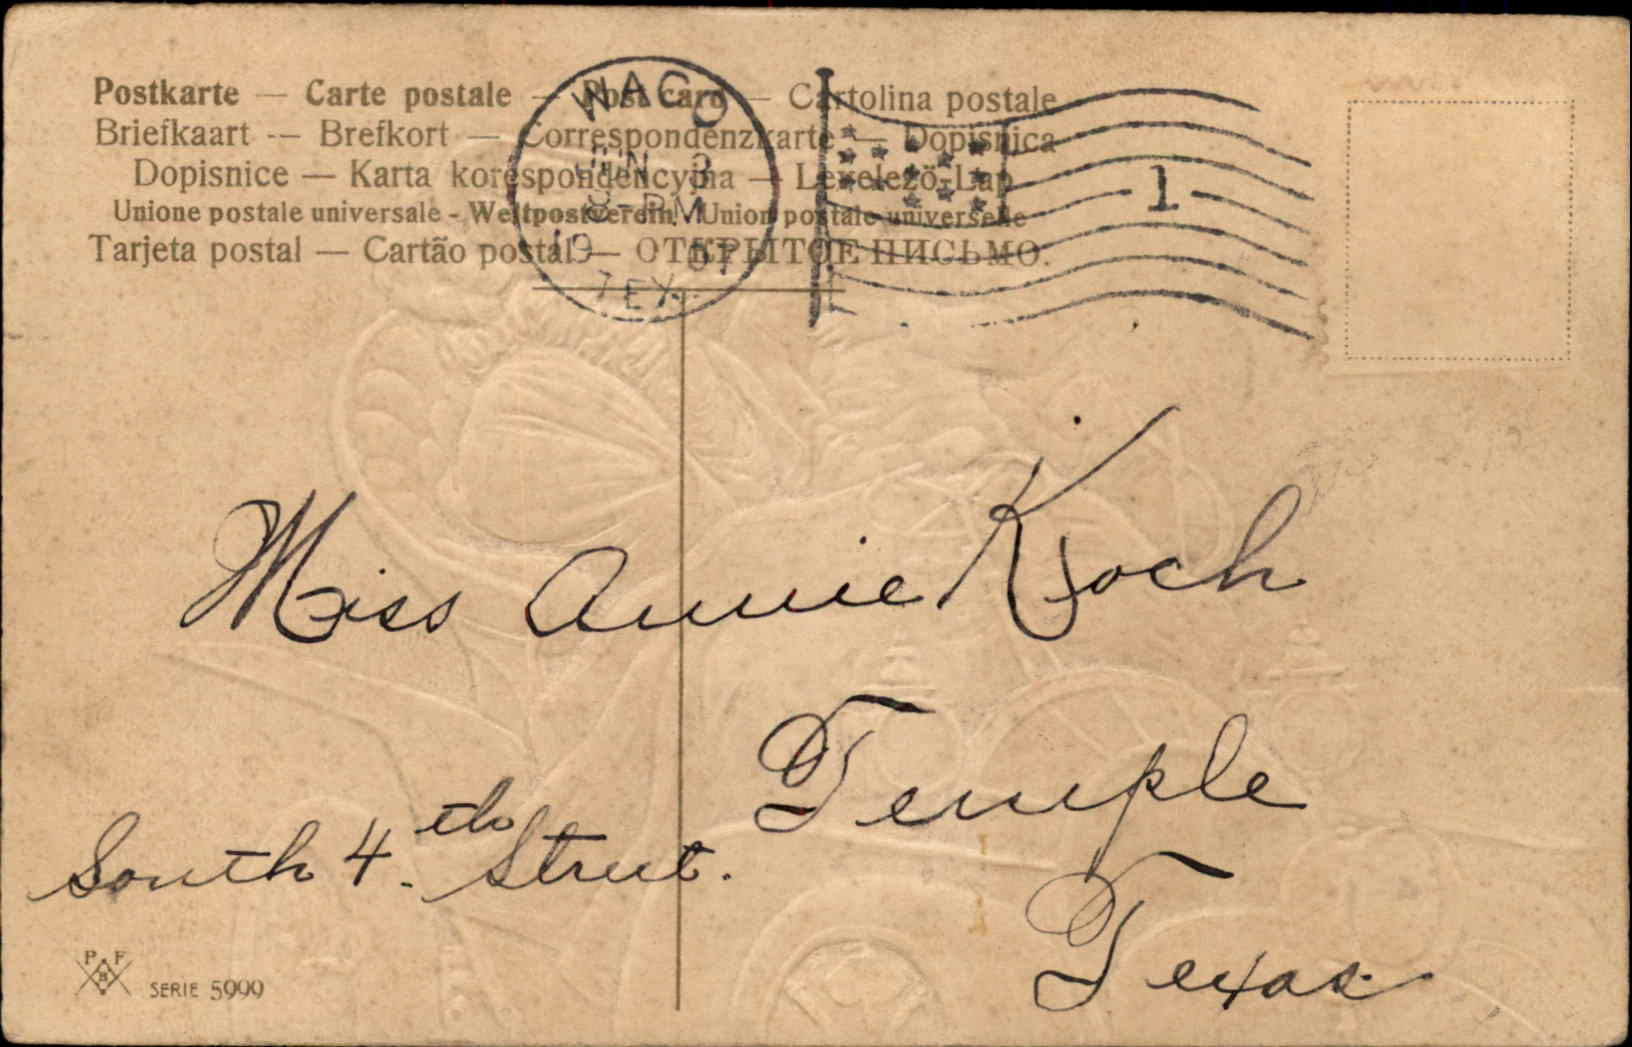 Postkarte — Carte postale — Post card — Cartolina postale
Briefkaart -- Brefkort — Correspondenzkarte — Dopisnica
Dopisnice — Karta korespondencyjna — Levelező-Lap
Unione postale universale - Weltpostverein. Union postale universelle
Tarjeta postal — Cartão postal — ОТКРЫТОЕ ПИСЬМО.
WACO
JUN 3
8-PM
19 07
TEX.
1
Miss Annie Koch
Temple
South 4.th Street.
Texas.
P F
B
SERIE 5999